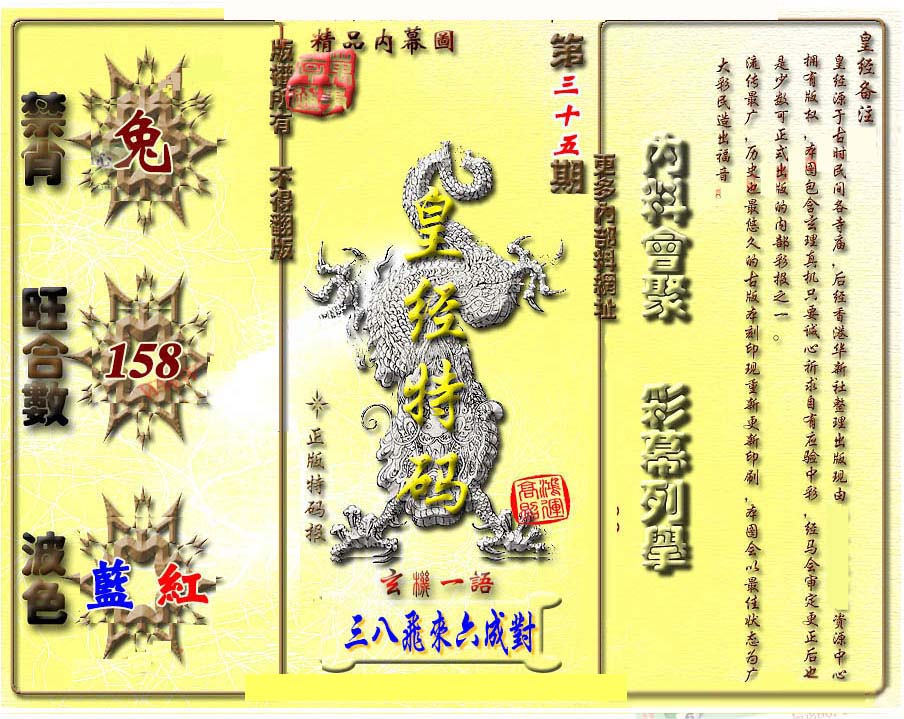 精品内幕圖
版權所有 不得翻版
第三十五期
更多內部料網址
禁肖
兔
旺合數
158
波色
藍 紅
皇经特码
正版特码报
鴻運高照
玄機一語
三八飛來六成對
內料會聚
彩幕列學
皇经备注
皇经源于古时民间各寺庙,后经香港华新社整理出版现由 资源中心
拥有版权,本图包含玄理真机只要诚心祈求自有应验中彩,经马会审定更正后也
是少数可正式出版的内部彩报之一。
流传最广,历史也最悠久的古版本刻印现重新更新印刷,本图会以最佳状态为广
大彩民造出福音